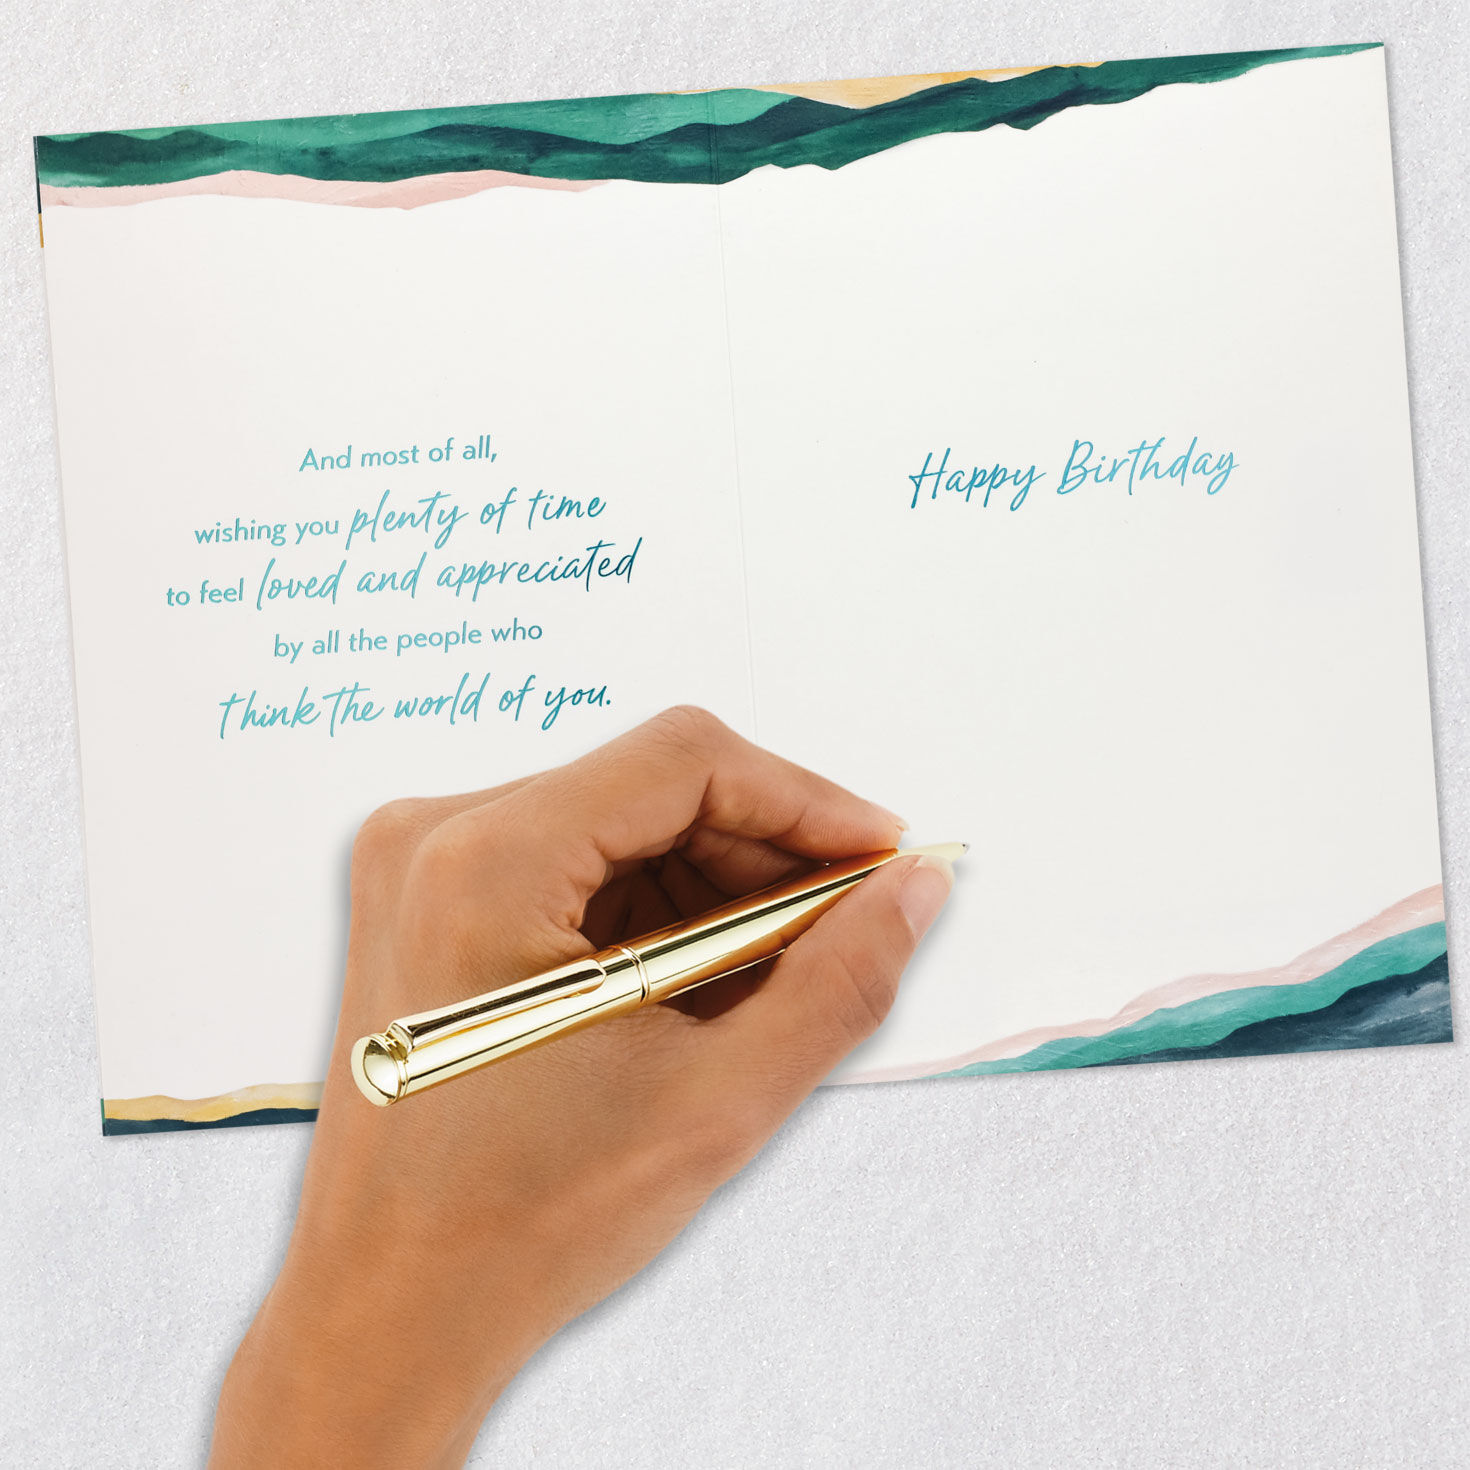 And most of all,
wishing you plenty of time
to feel loved and appreciated
by all the people who
think the world of you.
Happy Birthday